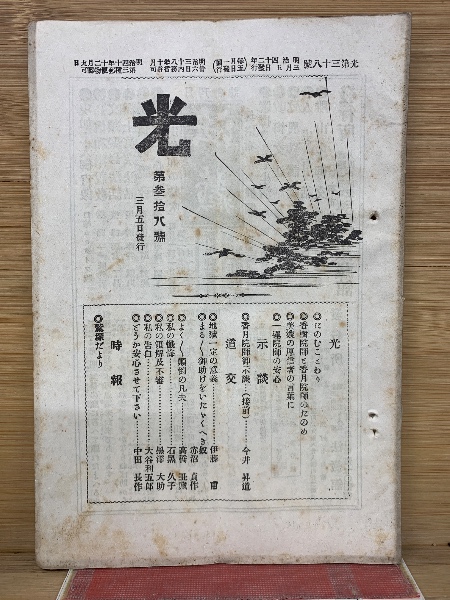 光第三十八號
明治四十二年三月五日發行
（每月一回五日發行）
明治三十八年十月廿六日內務省許可
明治四十年十二月九日第三種郵便物認可
光
第叁拾八號
三月五日發行
光
◉たのむことわり
◉香樹院師と香月院師のたのめ
◉老後の厚信者の言葉に
示談
◉一蓮院師の安心
◉香月院師御示談（接前） 今井昇道
道交
◉地獄一定の意義 伊藤
◉まる／＼御助けをいたゞくべき 赤沼貞作
◉よく／＼顚倒の凡夫 高橋
◉私の懺悔 石黑久子
◉私の領解及不審 島澤大助
◉私の告白 大谷利五郎
◉どうか安心させて下さい 中田長作
時報
◉鷲嶺だより